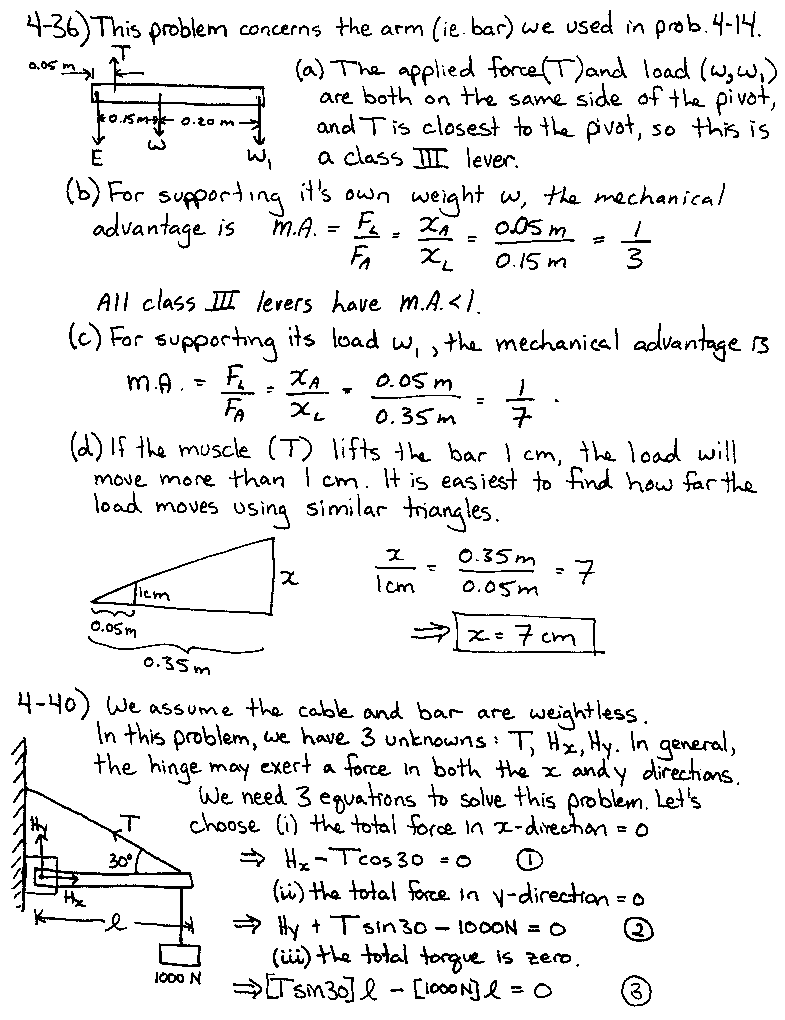 4-36) This problem concerns the arm (ie. bar) we used in prob. 4-14.
T
0.05 m
0.15m 0.20 m
E w w₁
(a) The applied force (T) and load (w, w₁)
are both on the same side of the pivot,
and T is closest to the pivot, so this is
a class III lever.
(b) For supporting it's own weight w, the mechanical
advantage is M.A. = F_L/F_A = x_A/x_L = 0.05 m/0.15 m = 1/3
All class III levers have M.A. < 1.
(c) For supporting its load w₁, the mechanical advantage is
M.A. = F_L/F_A = x_A/x_L = 0.05 m/0.35 m = 1/7.
(d) If the muscle (T) lifts the bar 1 cm, the load will
move more than 1 cm. It is easiest to find how far the
load moves using similar triangles.
1cm x
0.05m
0.35m
x/1cm = 0.35m/0.05m = 7
⇒ x = 7 cm
4-40) We assume the cable and bar are weightless.
In this problem, we have 3 unknowns: T, Hx, Hy. In general,
the hinge may exert a force in both the x and y directions.
We need 3 equations to solve this problem. Let's
choose (i) the total force in x-direction = 0
⇒ Hx - Tcos30 = 0 ①
(ii) the total force in y-direction = 0
⇒ Hy + Tsin30 - 1000N = 0 ②
(iii) the total torque is zero.
⇒ [Tsin30] l - [1000N] l = 0 ③
Hy T
30°
Hx
l
1000 N